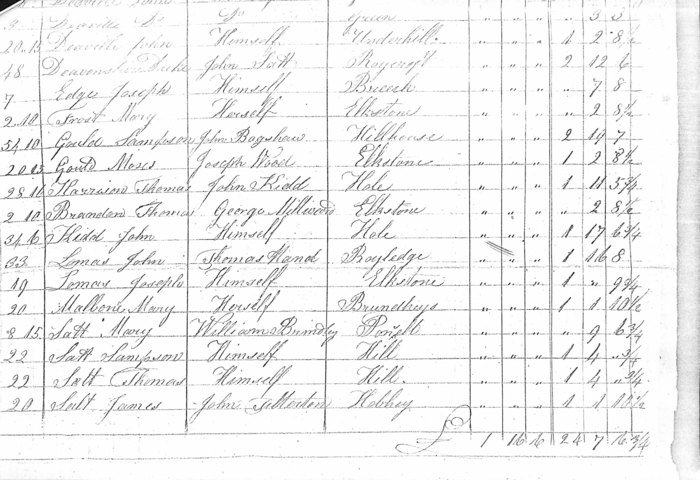 Deaville John
9 Deaville Do Do Green " " " " 3 3
20.15 Deaville John Himself Underhill " " " 1 2 8½
48 Devonshire Duke John Salt Roycroft " " " 2 12 6
7 Edge Joseph Himself Breech " " " " 7 8
2.10 Frost Mary Herself Elkstone " " " " 2 8½
54 10 Gould Sampson John Bagshaw Hillhouse " " " 2 19 7
20 15 Gould Moses Joseph Wood Elkstone " " " 1 2 8½
28 16 Harrison Thomas John Kidd Hole " " " 1 11 5¾
2 10 Brandon Thomas George Millward Elkstone " " " " 2 8½
34 6 Kidd John Himself Hole " " " 1 17 6¾
33 Lomas John Thomas Hand Boyledge " " " 1 16 8
19 Lomas Joseph Himself Elkstone " " " 1 " 9¾
20 Malbone Mary Herself Brundheys " " " 1 1 10½
8 15 Salt Mary William Brindley " " " " 9 6¾
22 Salt Sampson Himself Hill " " " 1 4 "¾
22 Salt Thomas Himself Hill " " " 1 4 "¾
20 Salt James John Hobhey " " " 1 1 10½
£ 1 16 6 24 7 6¾